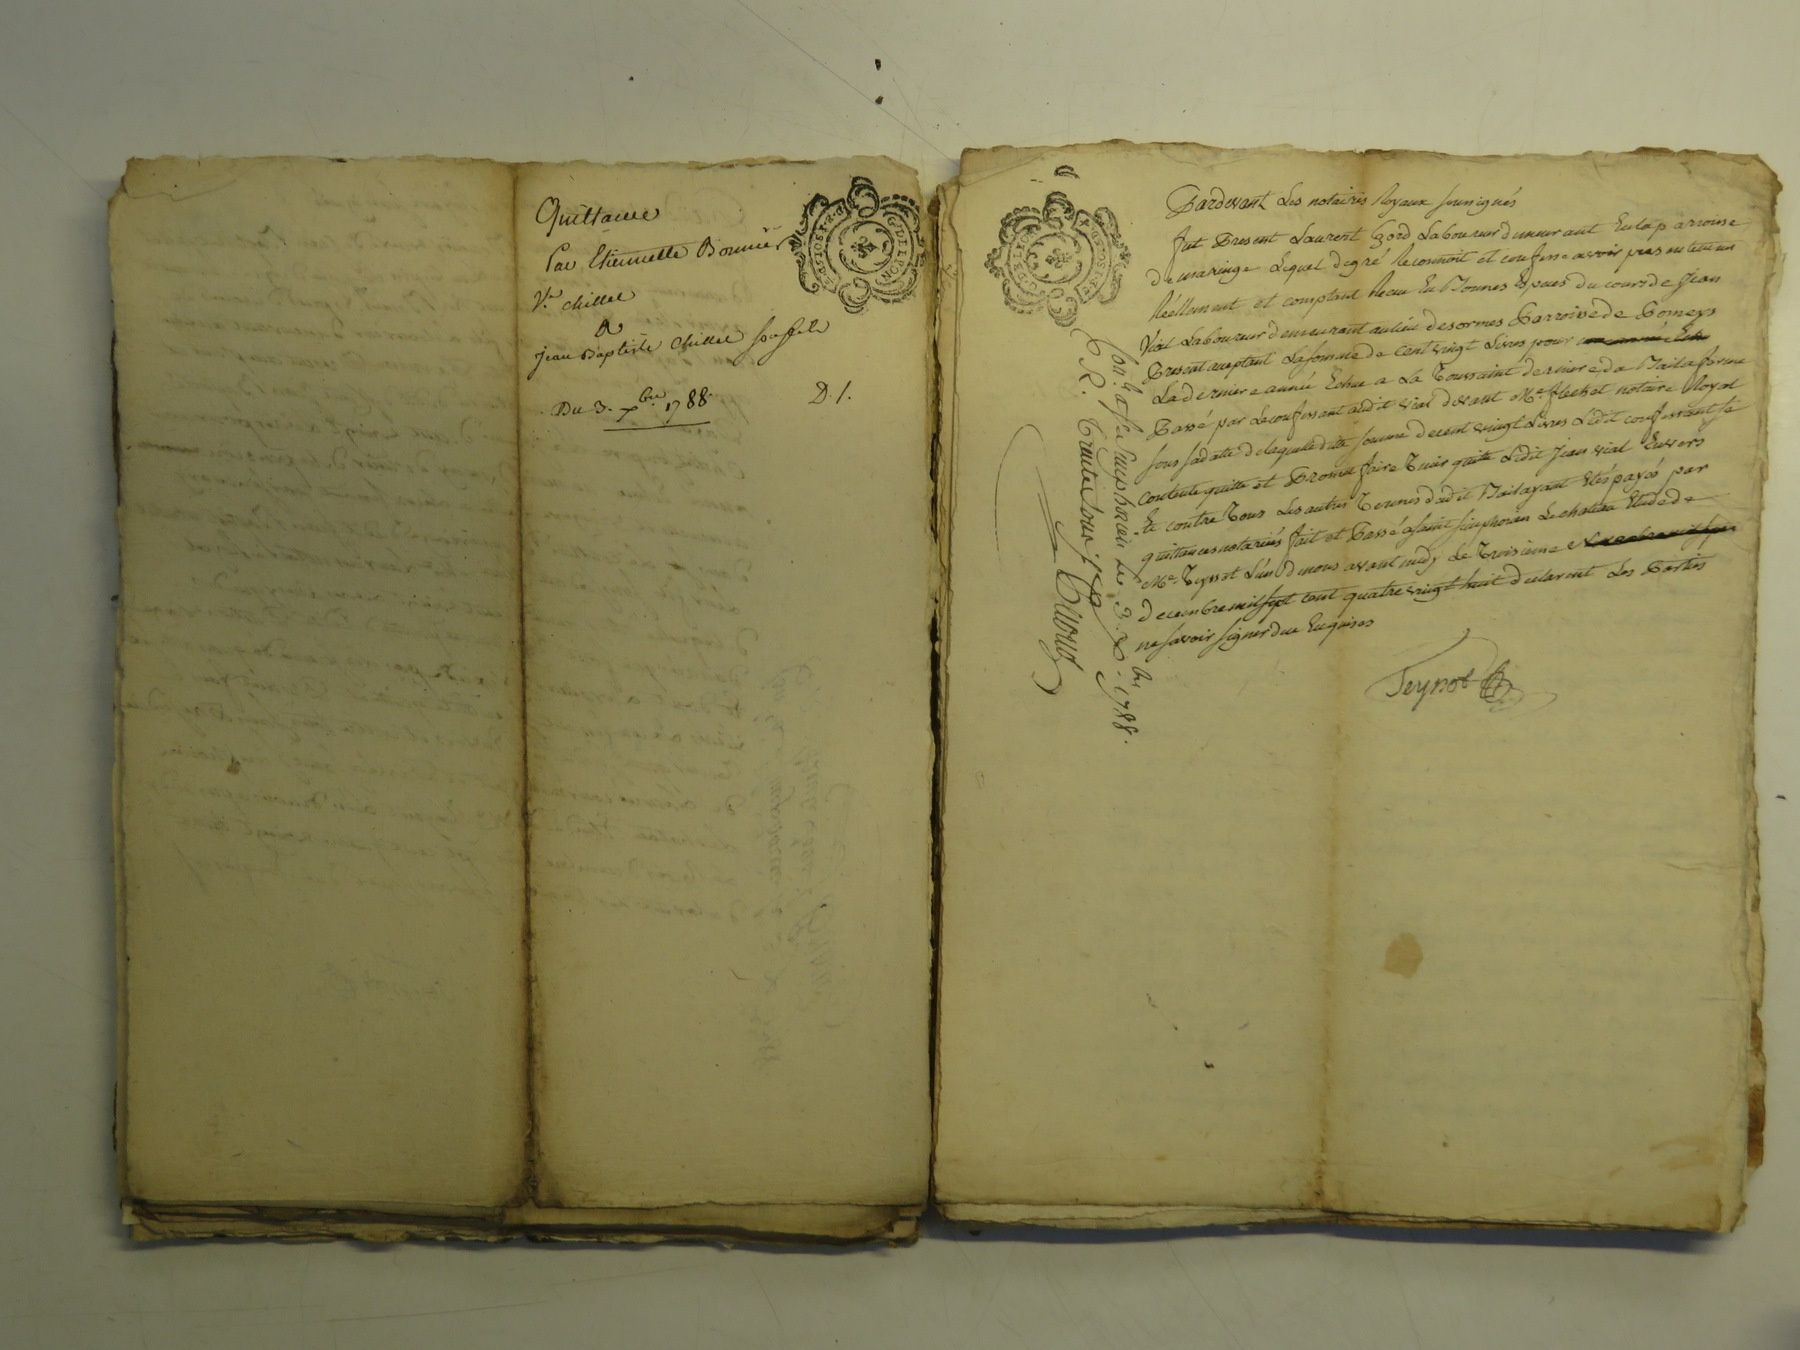 Quittance
Par Etiennette Bonnier
V.e chillet
A
jean Baptiste chillet son fils
Du 3. xbre 1788.
D. 1.
G. DE LYON
Pardevant Les notaires Royaux soussignés
fut Present Laurent Laboureur demeurant En la parroisse
de maringe Lequel degré Reconnoit et confesse avoir presentement
Réellement et comptant Recu En Bonnes Especes du cours de Jean
Vial Laboureur demeurant au lieu des ormes Parroisse de Pomeys
Present aceptant La somme de cent vingt Livres pour
La derniere année Echue a La Toussaint derniere, du Bail a ferme
Passé par Le confessant audit vial devant Me. notaire Royal
sous sa datte de laquelle ditte somme de cent vingt Livres Ledit confessant se
contente quitte et Promet faire Tenir quitte Ledit jean vial Envers
Et contre Tous Les autres Termes dudit Bail ayant Etés payés par
quittances notariées fait et Passé a saint simphorien Le chateau Etude de
Me. Teyssot L'un de nous avant midy Le Troisieme
decembre mil sept cent quatre vingt huit declarent Les Parties
ne savoir signer due Enquises
Teyssot
Con.lé a St. Simphorien le 3. xbre 1788.
R. Trente sous